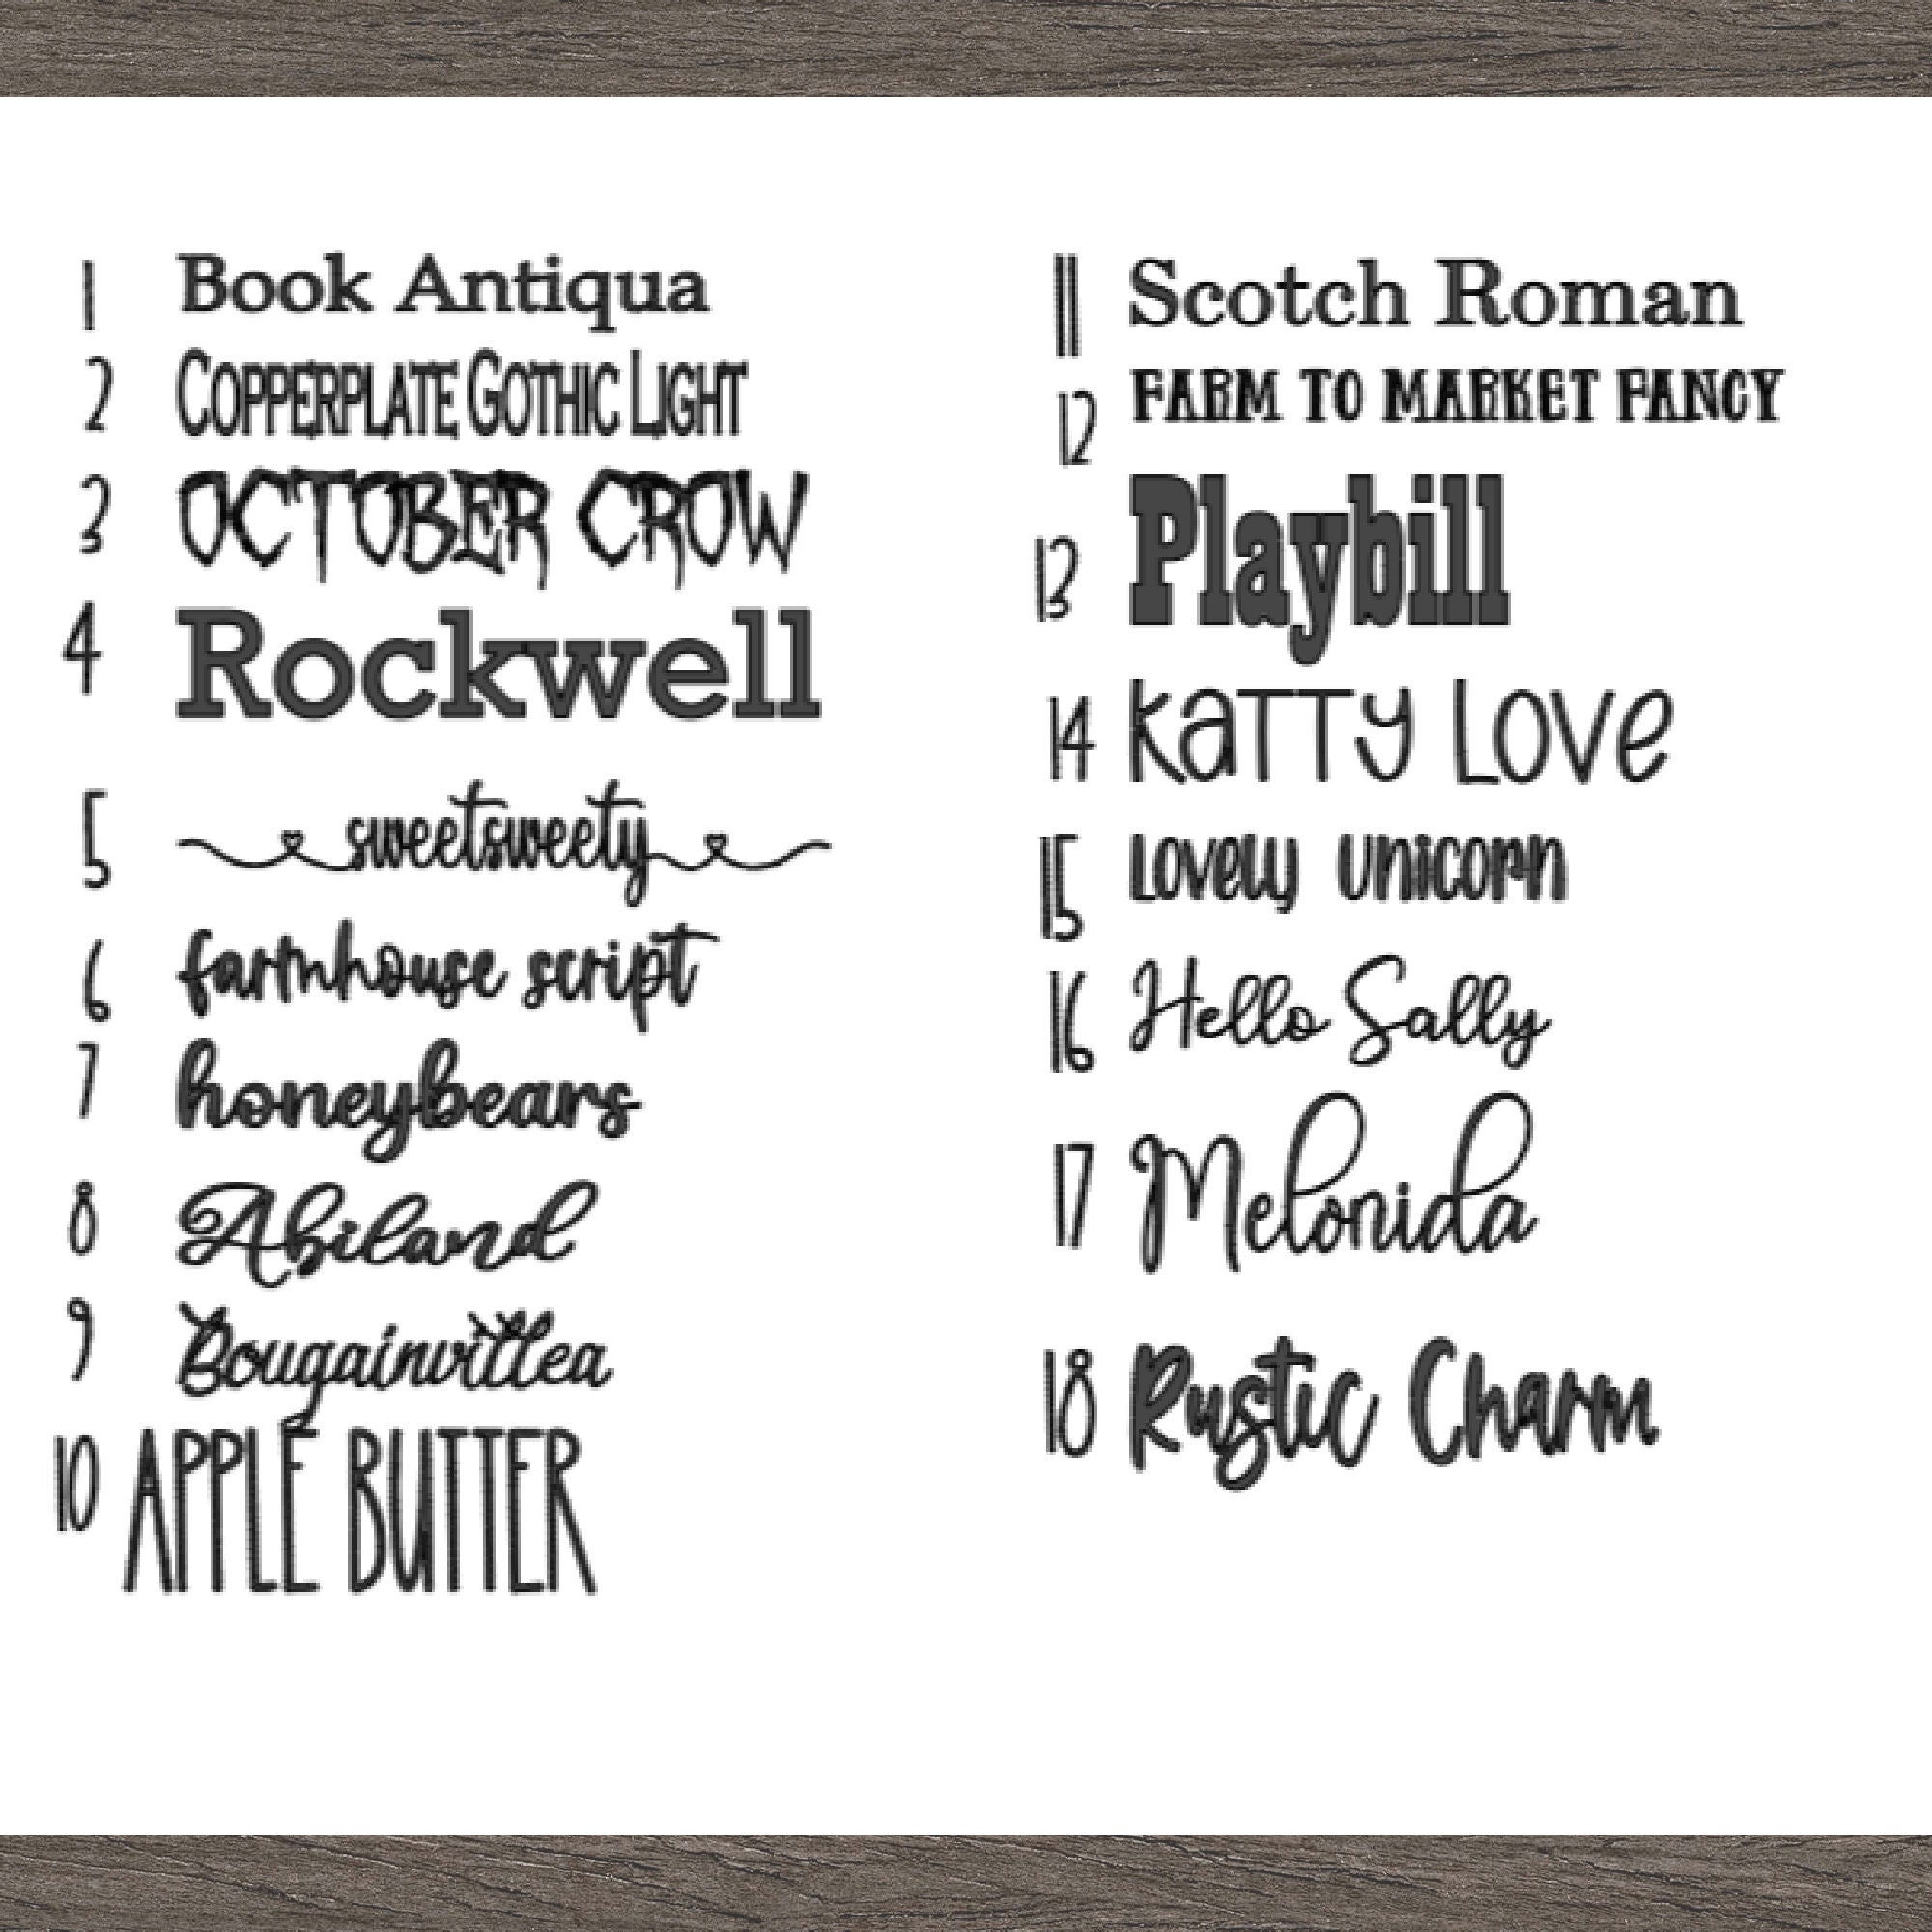 1 Book Antiqua
2 Copperplate Gothic Light
3 OCTOBER CROW
4 Rockwell
5 sweetsweety
6 farmhouse script
7 honeybears
8 Abiland
9 Bougainvillea
10 APPLE BUTTER
11 Scotch Roman
12 FARM TO MARKET FANCY
13 Playbill
14 KaTTy Love
15 Lovely Unicorn
16 Hello Sally
17 Melonida
18 Rustic Charm